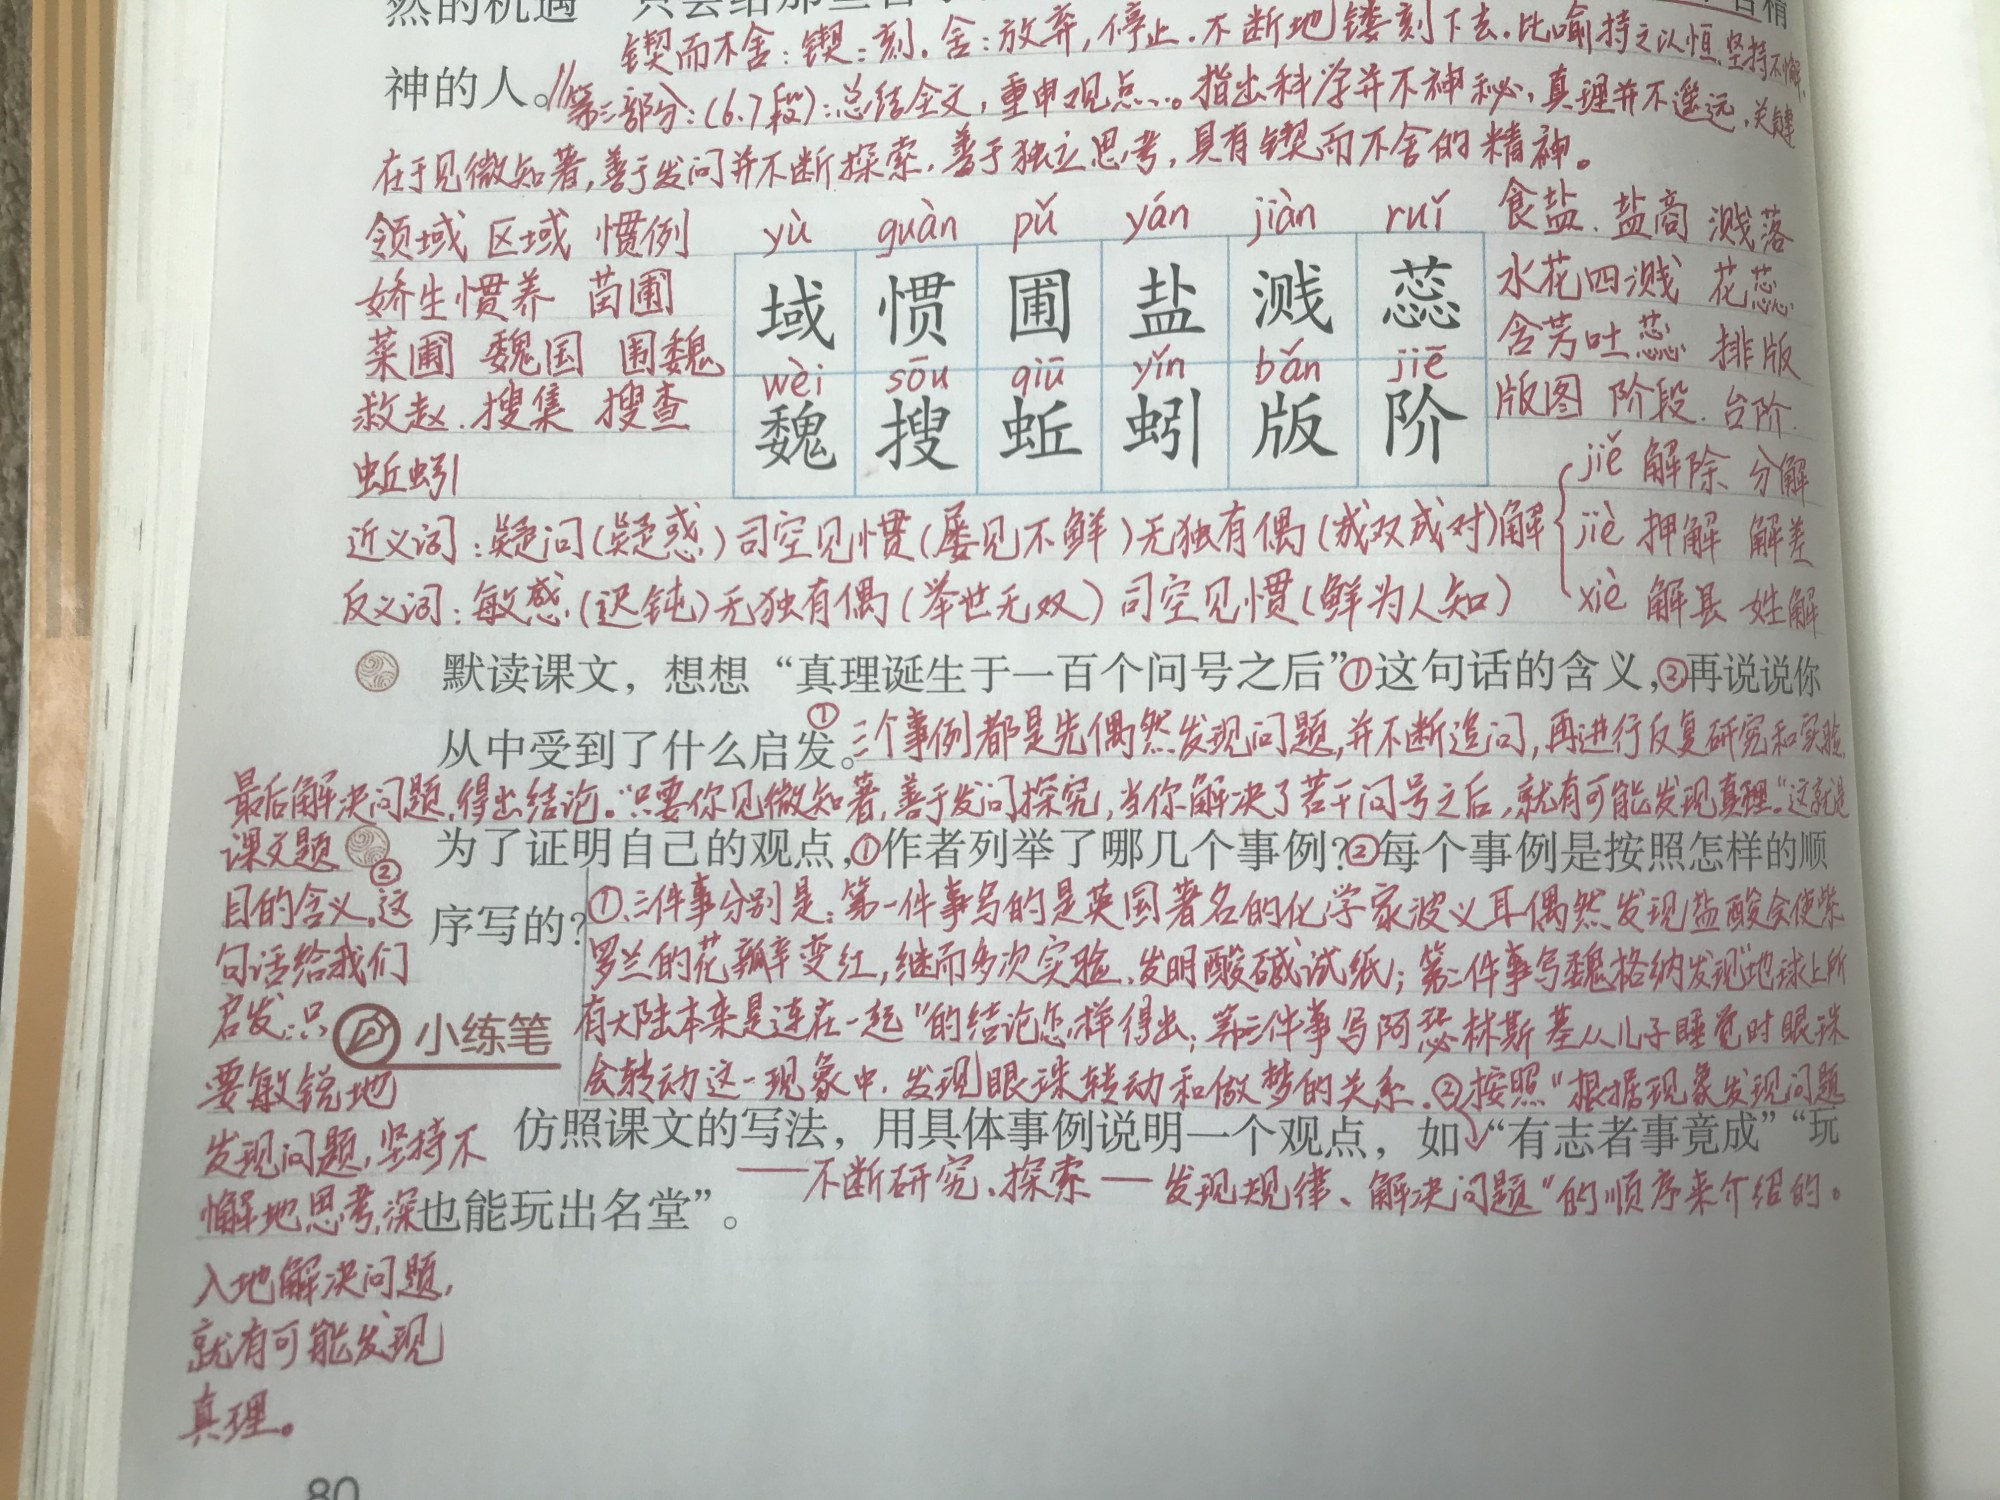 然的机遇
神的人。
锲而不舍：锲：刻.舍：放弃,停止.不断地镂刻下去.比喻持之以恒.坚持不懈.
第三部分：(6.7段)：总结全文,重申观点….指出科学并不神秘,真理并不遥远,关键
在于见微知著,善于发问并不断探索,善于独立思考,具有锲而不舍的精神。
领域 区域 惯例 yù guàn pǔ yán jiàn ruǐ 食盐.盐商 溅落
娇生惯养 苗圃 域 惯 圃 盐 溅 蕊 水花四溅 花蕊
菜圃 魏国 围魏 wèi sōu qiū yǐn bǎn jiē 含芳吐蕊 排版
救赵.搜集 搜查 魏 搜 蚯 蚓 版 阶 版图 阶段.台阶.
蚯蚓 jiě 解除 分解
近义词：疑问(疑惑)司空见惯(屡见不鲜)无独有偶(成双成对)解 jiè 押解 解差
反义词：敏感(迟钝)无独有偶(举世无双)司空见惯(鲜为人知) xiè 解县 姓解
默读课文，想想“真理诞生于一百个问号之后”①这句话的含义，②再说说你
从中受到了什么启发。①三个事例都是先偶然发现问题,并不断追问,再进行反复研究和实验,
最后解决问题,得出结论。“只要你见微知著,善于发问探究,当你解决了若干问号之后,就有可能发现真理.”这就是
课文题 为了证明自己的观点，①作者列举了哪几个事例？②每个事例是按照怎样的顺
目的含义。②这 序写的？①、三件事分别是：第一件事写的是英国著名的化学家波义耳偶然发现盐酸会使紫
句话给我们 罗兰的花瓣变红,继而多次实验,发明酸碱试纸；第二件事写魏格纳发现“地球上所
启发：只 小练笔 有大陆本来是连在一起”的结论怎样得出；第三件事写阿瑟林斯基从儿子睡觉时眼珠
要敏锐地 会转动这一现象中,发现眼珠转动和做梦的关系.②按照“根据现象发现问题
发现问题,坚持不 仿照课文的写法，用具体事例说明一个观点，如“有志者事竟成”“玩
懈地思考,深 也能玩出名堂”。 ——不断研究、探索——发现规律、解决问题”的顺序来介绍的。
入地解决问题,
就有可能发现
真理。
80